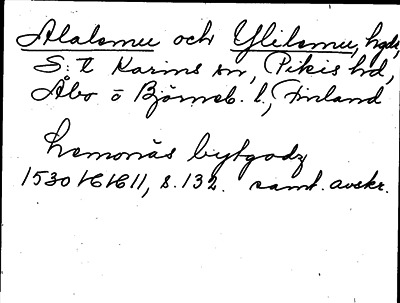 Alalemu och Ylilemu, hgdr,
S:t Karins sn, Pikis hd,
Åbo o Björneb. l., Finland
Lemonäs bytgods
1530 16/6 11, s. 132. samt. avskr.